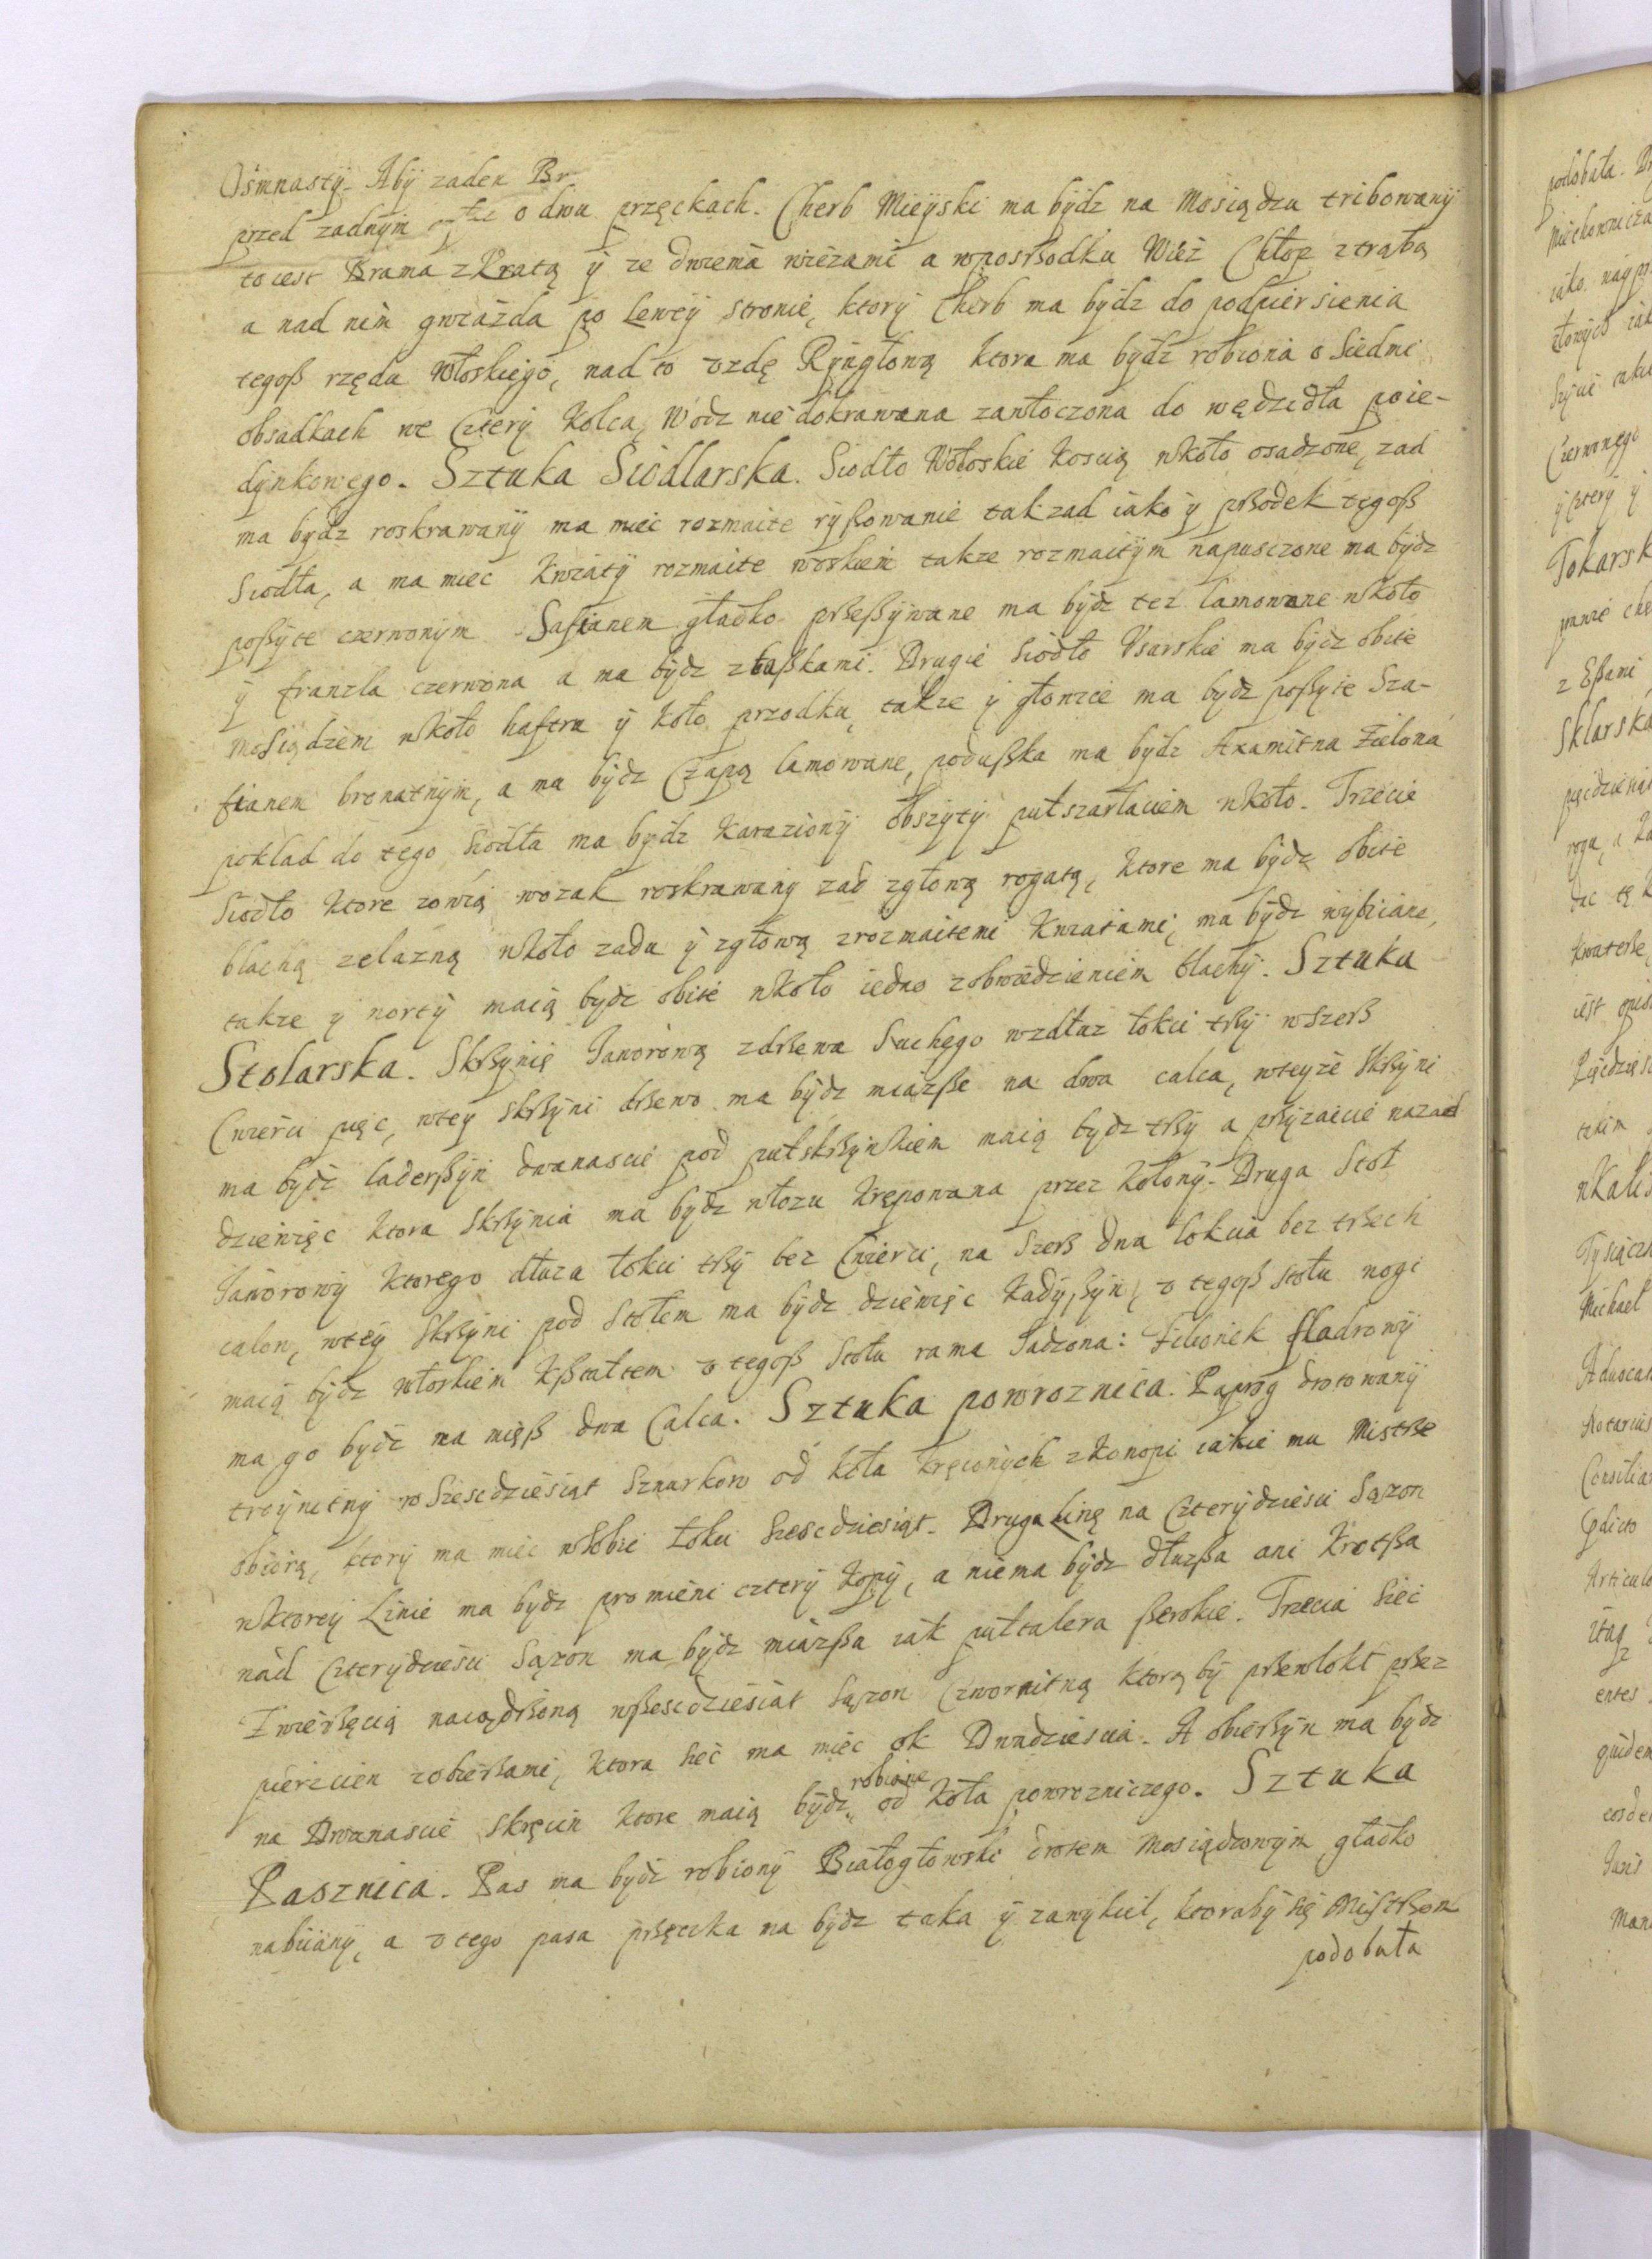 Ośmnasty. Aby zaden Br
przed zadnym o dwu przęckach. Cherb Mieyski ma bydz na Mosiądzu tribowany
to iest Brama z Kratą y ze dwiema wiezami a w posrzodku Wiez Chłop z trąbą
a nad nim gwiazda po Lewey stronie, ktory Cherb ma bydz do podpiersienia
tegoß rzędu Włoskiego, nad to vzdę Ryngłową ktora ma bydz robiona o Siedmi
obsadkach we Cztery Kolca, Wodz nie dokrawana zawłoczona do wędzidła poie-
dynkowego. Sztuka Siodlarska. Siodło Wołoskie Koscią wkoło osadzone, zad
ma bydz roskrawany ma miec rozmaite ryßowanie tak zad iako y przodek tegoß
Siodła, a ma miec Kwiaty rozmaite woskiem takze rozmaitym napusczone ma bydz
poßyte czerwonym Safianem gładko przeßywane ma bydz tez lamowane wkoło
y franzla czerwona a ma bydz z taßkami. Drugie Siodło Vsarskie ma bydz obite
Mosiądzem wkoło haftru y koło przodku, takze y głowie ma bydz poßyte Sza-
fianem bronatnym, a ma bydz Czapą lamowane, podußka ma bydz Axamitna Zielona
pokład do tego Siodła ma bydz Karaziony obszyty pułszarłaciem wkoło. Trzecie
Siodło Ktore zowią wozak roskrawany zad z głową rogatą, Ktore ma bydz obite
blachą zelazną wkoło zadu y z głową z rozmaitemi Kwiatami, ma bydz wybiiane,
takze y norty maią bydz obite wkoło iedno z obwiedzieniem blachy. Sztuka
Stolarska. Skrzynię Jaworową z drzewa Suchego wzdłuz łokci trzy wszerz
Cwierci pięc, w tey skrzyni drzewo ma bydz miązße na dwa calca, w teyze Skrzyni
ma bydz laderßyn dwanascie pod pułskrzynkiem maią bydz trzy a przyzaicie nazad
dziewięc ktora Skrzynia ma bydz włozu Kręponana przez Kołony. Druga Stoł
Jaworowy Ktorego dłuza łokci trzy bez Cwierci, na Szerz dwa łokcia bez trzech
calow, w tey Skrzyni pod Stołem ma bydz dziewięc Kadyßyn, v tegoß stołu nogi
maią bydz włoskiem Kßtałtem v tegoß Stołu rama Sadzona: Zielonek fladrowy
ma go bydz na mięß dwa Calca. Sztuka powroznica. Paprog drotowany
troynitny w Szescdziesiąt Sznurkow od Koła Kręconych z Konopi iakie mu Mistrze
obiorą, ktory ma miec w Sobie Łokci Szescdziesiąt. Druga Linę na Czterydziesci Sązon
w Ktorey Linie ma bydz promieni cztery Kopy, a niema bydz dłuzßa ani Krotßa
nad Czterydziesci Sązon ma bydz miązßa iak pułtalera ßerokie. Trzecia Siec
Zwierzęcią naiądrzoną w ßescdziesiat Sązon Czwornitną ktorą by przewlokł przez
pierzcien z obierzami, ktora siec ma miec ok Dwudziescia. A obierzyn ma bydz
na Dwanascie Skręcin ktore maią bydz robione od Koła powrozniczego. Sztuka
Pasznica. Pas ma bydz robiony Białogłowski drotem Mosiądzowym gładko
nabiiany, a v tego pasa przęcka ma bydz taka y zamykiel, ktoraby się Mistrzom
podobała